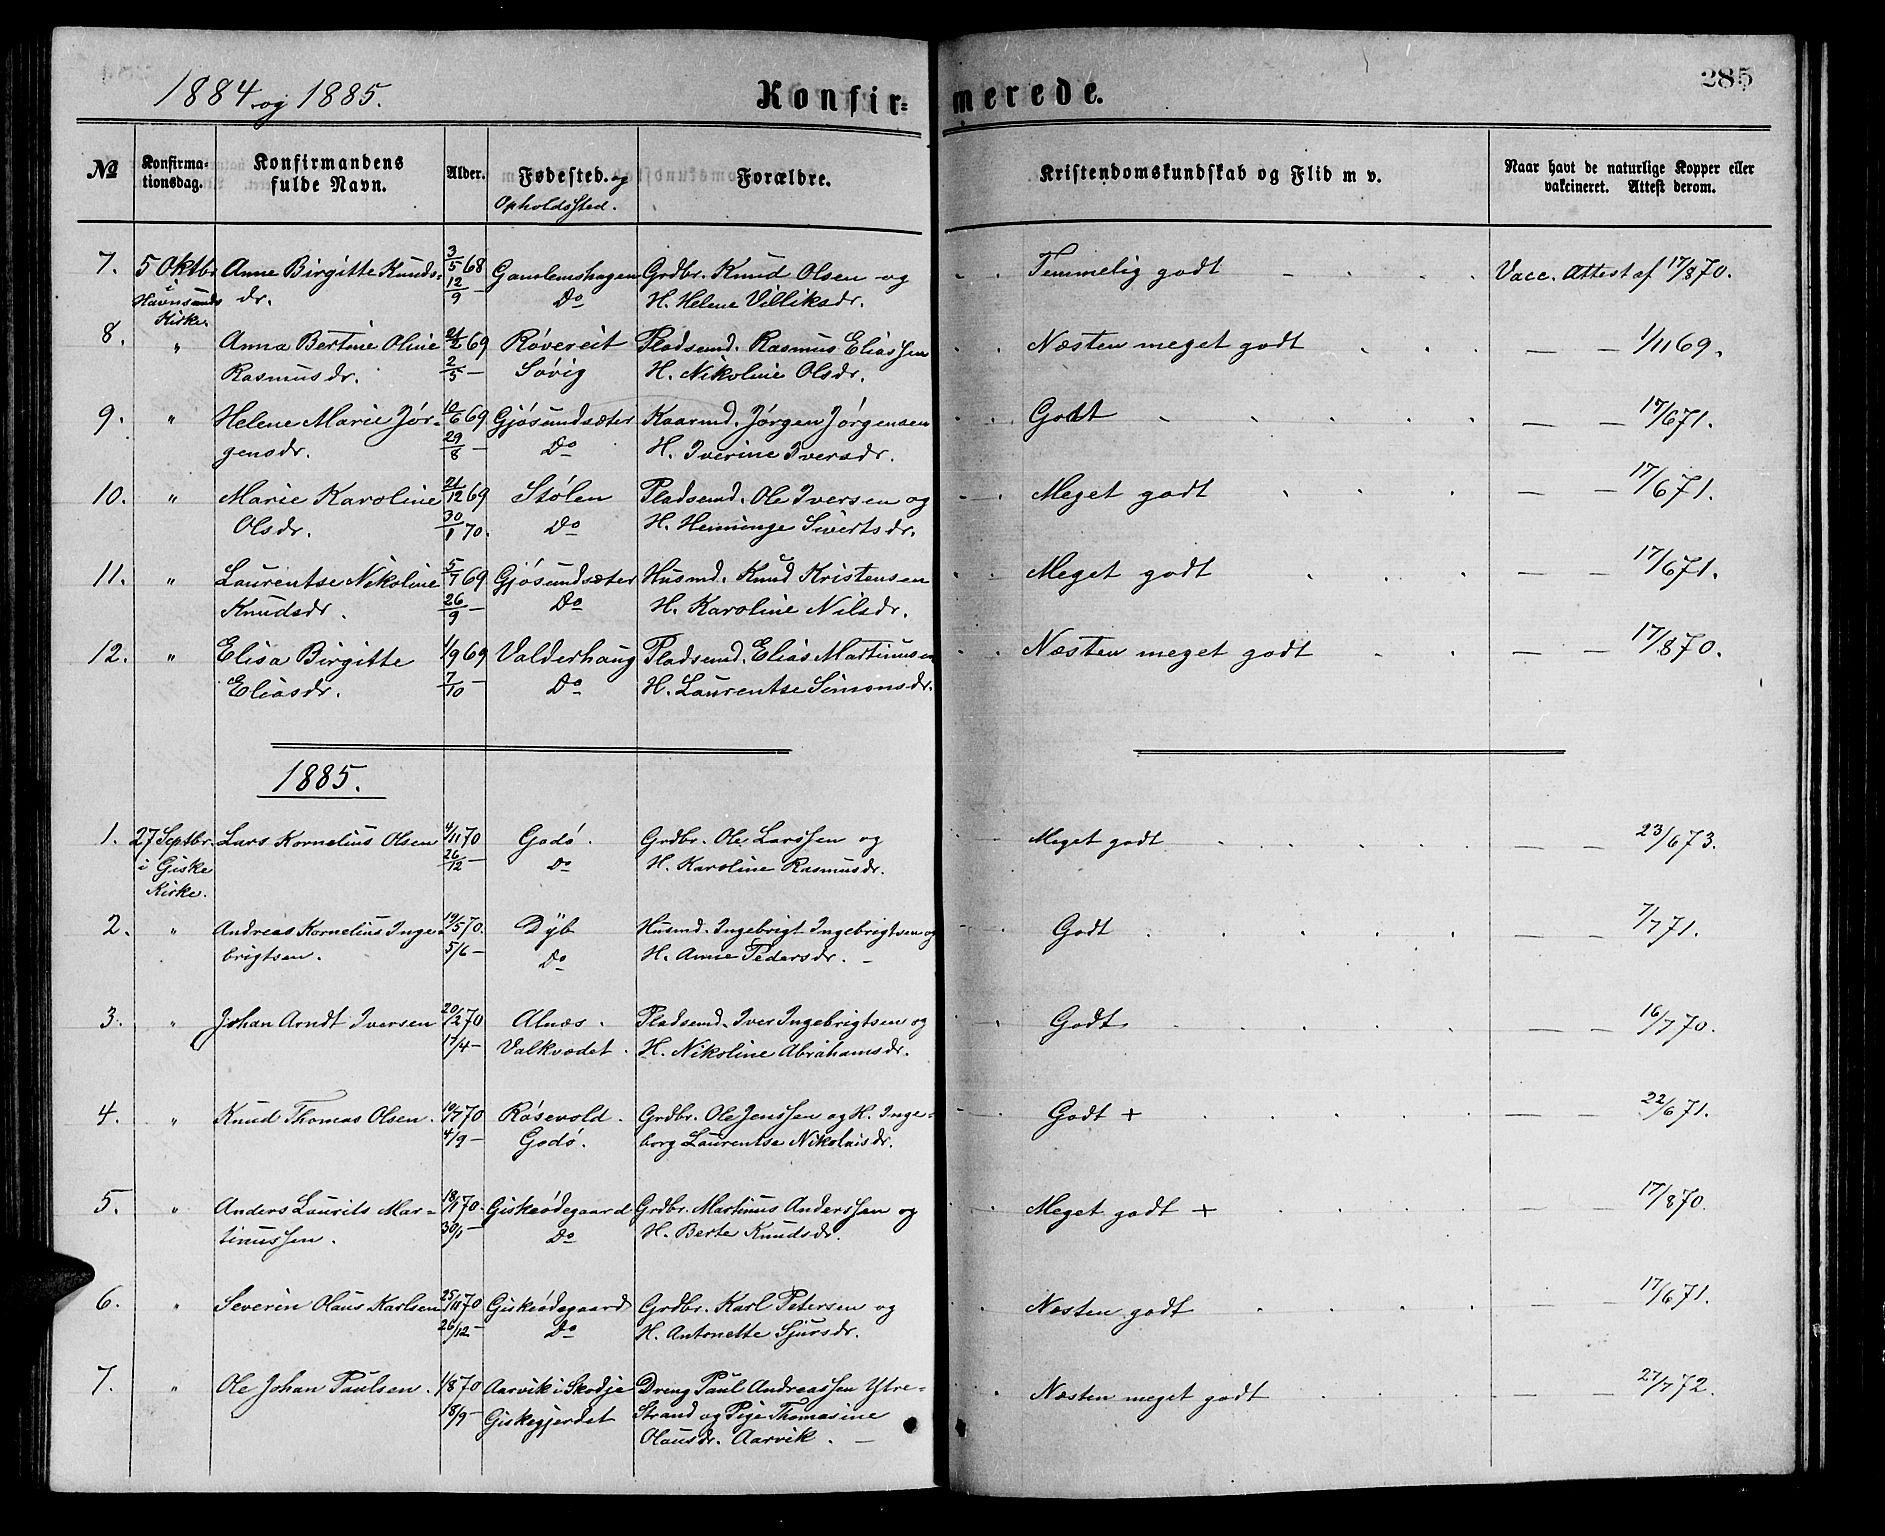 285
1884 og 1885. Konfirmerede.
№ Konfirmationsdag. Konfirmandens fulde Navn. Alder. Fødested. og Opholdssted. Forældre. Kristendomskundskab og Flid m v. Naar havt de naturlige Kopper eller vakcineret. Attest derom.
7. 5 Oktbr Anne Birgitte Knuds- 3/5 68 Gamlemshagen Grdbr. Knud Olsen og Temmelig godt Vacc. Attest af 17/8 70.
i Havnsunds dr. 12/9 Do H. Helene Villiksdr.
Kirke.
8. " Anna Bertine Oline 21/2 69 Røvereit Pladsemd. Rasmus Eliassen Næsten meget godt — — 1/11 69.
Rasmusdr. 2/5 — Søvig H. Nikoline Olsdr.
9. " Helene Marie Jør- 10/6 69 Gjøsundsæter Kaarmd. Jørgen Jørgensen Godt — — 17/6 71.
gensdr. 29/8 — Do H. Iverine Iversdr.
10. " Marie Karoline 21/12 69 Stølen Pladsemd. Ole Iversen og Meget godt — — 17/6 71.
Olsdr. 30/1 70. Do H. Hemminge Sivertsdr.
11. " Laurentse Nikoline 5/7 69 Gjøsundsæter Husmd. Knud Kristensen Meget godt — — 17/6 71.
Knudsdr. 26/9 — Do H. Karoline Nilsdr.
12. " Elisa Birgitte 1/9 69 Valderhaug Pladsemd. Elias Martinusen Næsten meget godt — — 17/8 70.
Eliasdr. 7/10 — Do H. Laurentse Simonsdr.
1885.
1. 27 Septbr. Lars Kornelius Olsen 4/11 70 Godø. Grdbr. Ole Larssen og Meget godt — — 23/6 73.
i Giske 26/12 — Do H. Karoline Rasmusdr.
Kirke.
2. " Andreas Kornelius Inge- 19/5 70. Dÿb Husmd. Ingebrigt Ingebrigtsen og Godt — — 7/7 71.
brigtsen. 5/6 — Do H. Anne Pedersdr. —
3. " Johan Arndt Iversen 20/2 70 Alnæs. Pladsemd. Iver Ingebrigtsen og Godt — — 16/7 70.
17/4 — Valkvædet. H. Nikoline Abrahamsdr.
4. " Knud Thomas Olsen. 19/7 70 Røsevold. Grdbr. Ole Jenssen og H. Inge- Godt + — — 22/6 71.
4/9 — Godø. borg Laurentse Nikolaisdr.
5. " Anders Laurits Mar- 18/1 70. Giskeødegaard Grdbr. Martinus Anderssen og Meget godt + — — 17/8 70.
tinussen. 30/1 Do H. Berte Knudsdr.
6. " Severin Olaus Karlsen 25/11 70 Giskeødegaard Grdbr. Karl Petersen og Næsten godt — — 17/6 71.
26/12 — Do H. Antonette Sjursdr.
7. " Ole Johan Paulsen. 1/8 70 Aarvik i Skodje Dreng Paul Andreassen Ytre- Næsten meget godt — — 27/7 72.
18/9 — Giskegjerdet Strand og Pige Thomasine
Olausdr. Aarvik. —